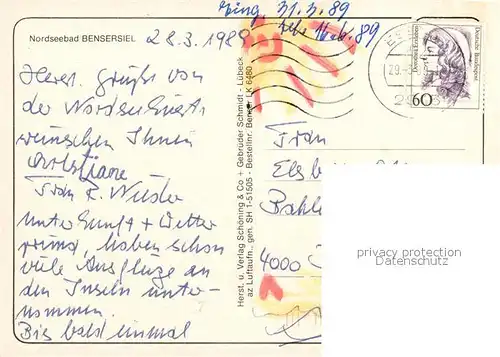 Nordseebad BENSERSIEL
28.3.1989
Eing. 31.3.89
Herzl. Grüße von
der Nordseeküste
wünschen Ihnen
Frau R.
Unterkunft + Wetter
prima, haben schon
viele Ausflüge an
den Inseln unter-
nommen.
Bis bald einmal
Herst. u. Verlag Schöning & Co + Gebrüder Schmidt - Lübeck
az Luftaufn., gen. SH 1-51505 - Bestellnr. Benser LK 6480
29.-3
Deutsche Bundespost
60
Frau
4000
privacy protection
Datenschutz